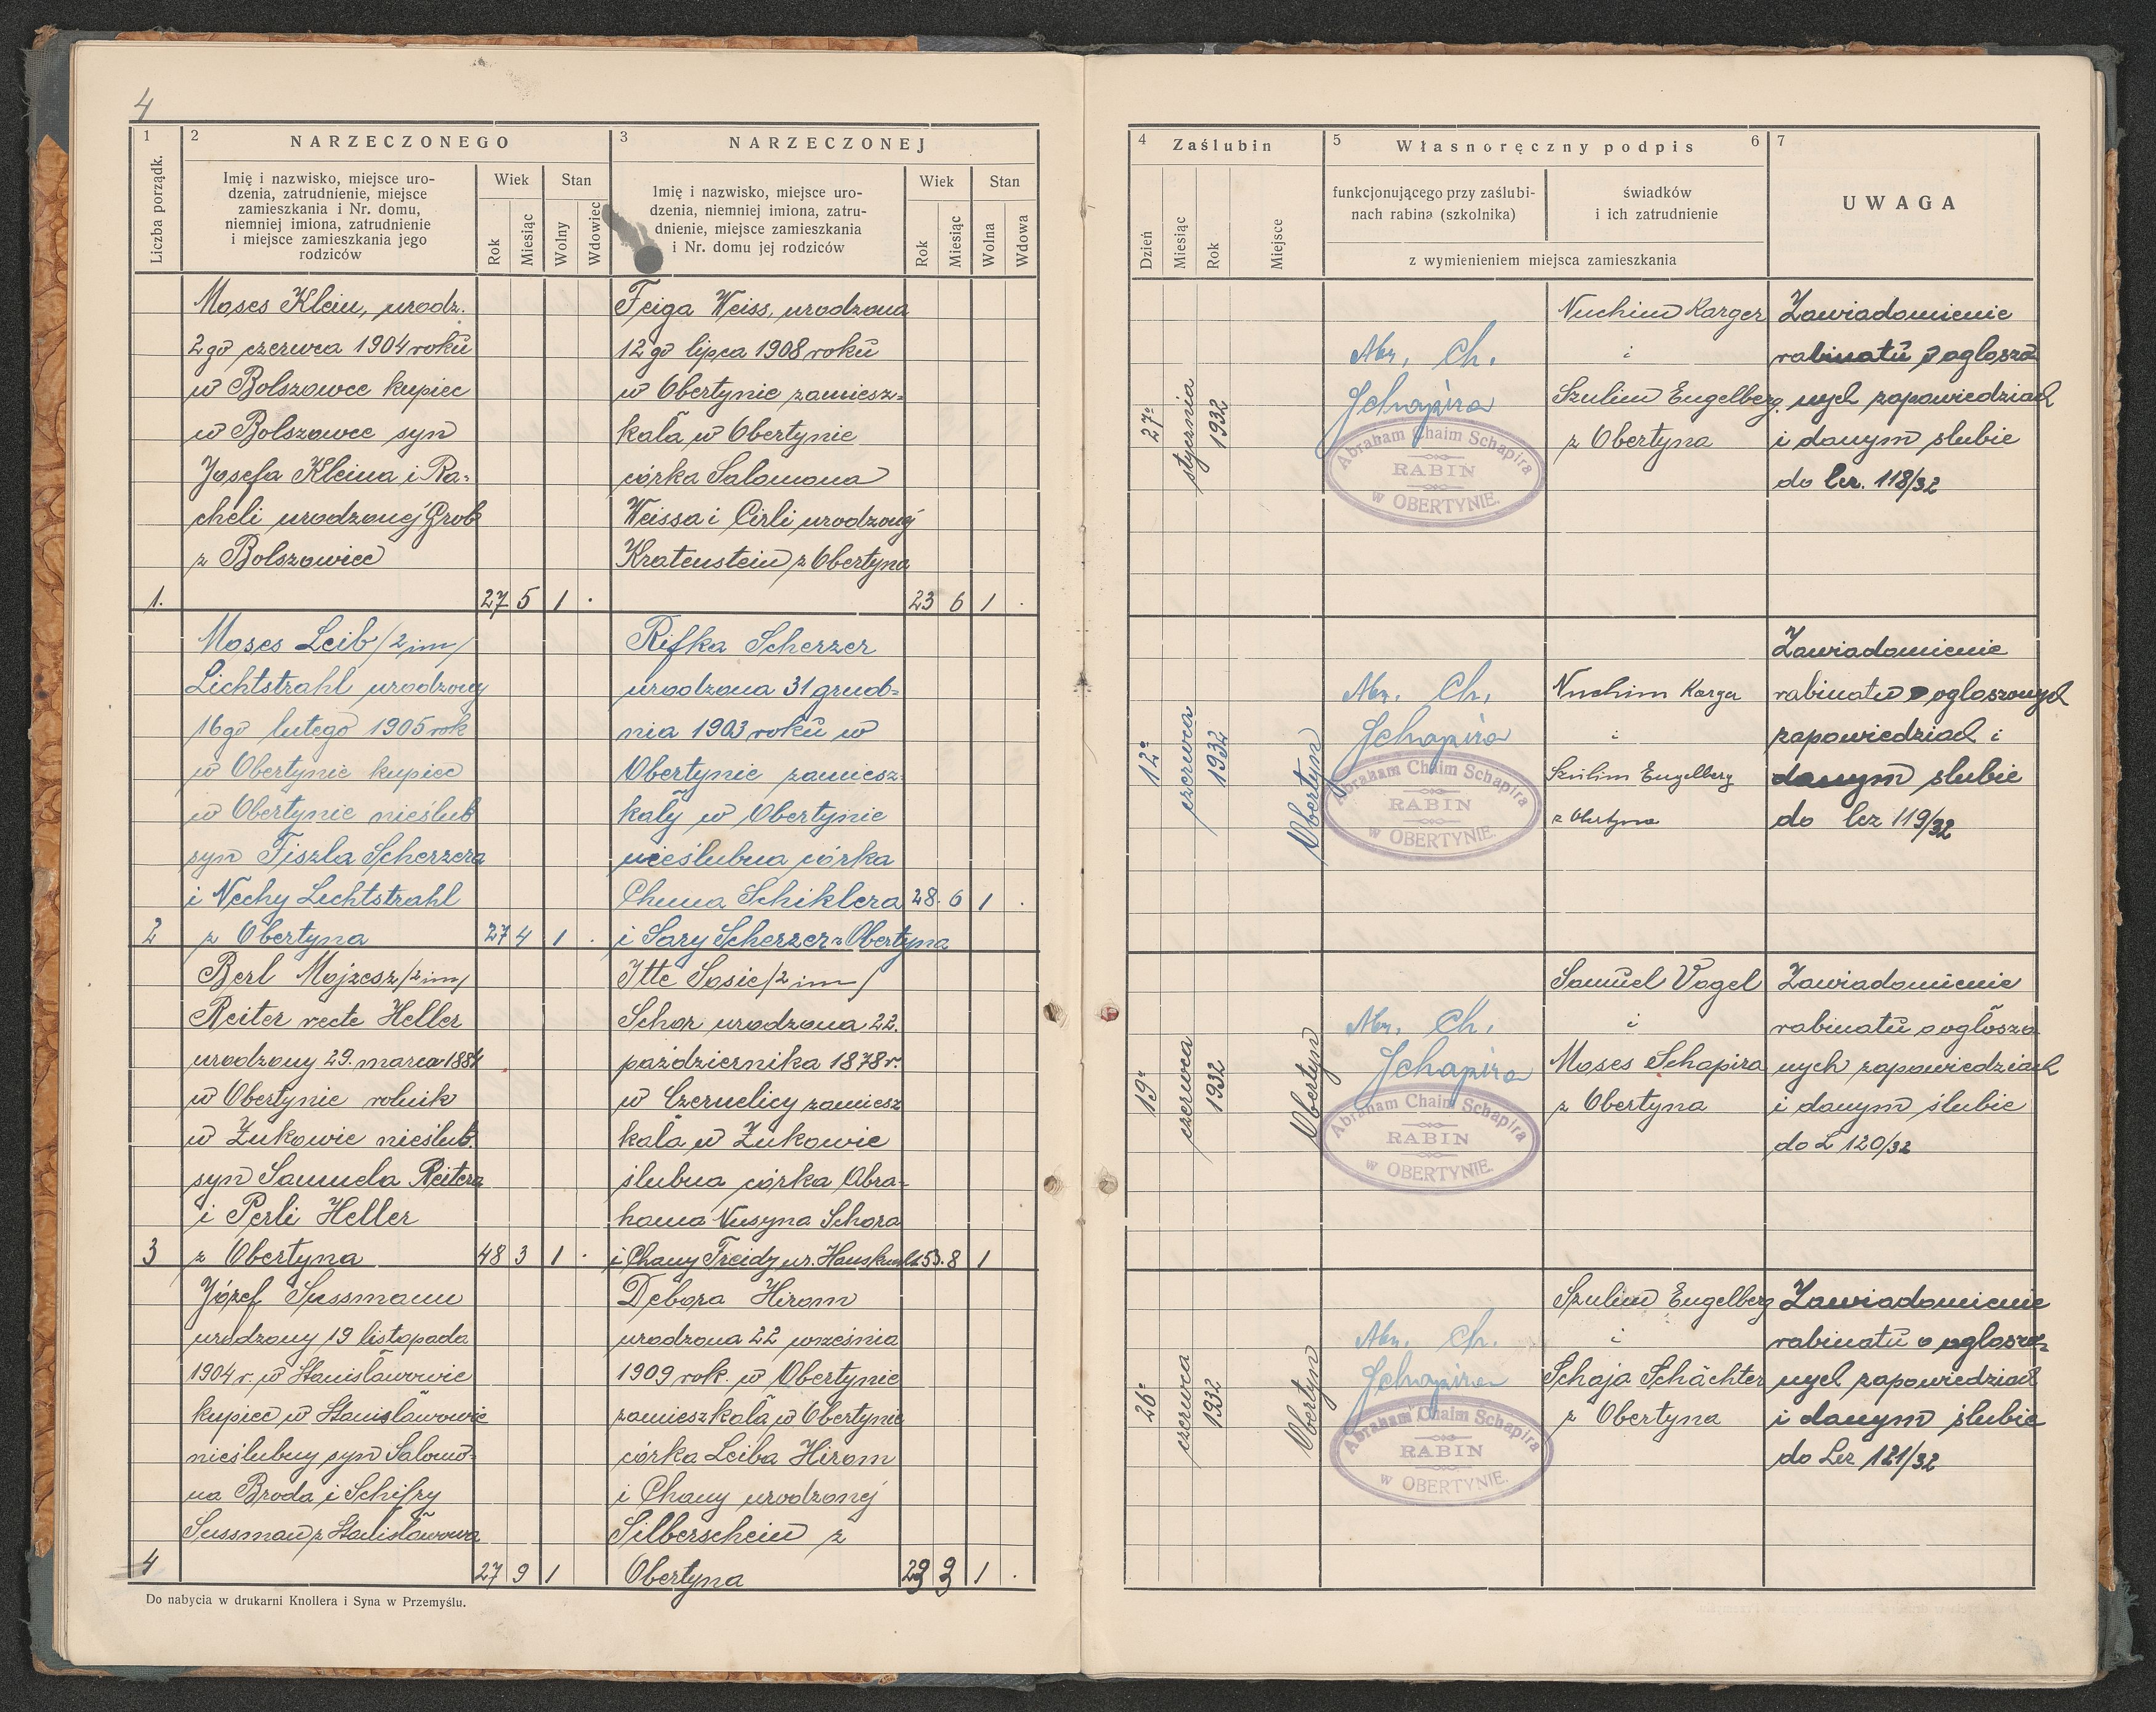 4
1
2
NARZECZONEGO
3
NARZECZONEJ
Liczba porządk.
Imię i nazwisko, miejsce uro-
dzenia, zatrudnienie, miejsce
zamieszkania i Nr. domu,
niemniej imiona, zatrudnienie
i miejsce zamieszkania jego
rodziców
Wiek
Stan
Rok
Miesiąc
Wolny
Wdowiec
Imię i nazwisko, miejsce uro-
dzenia, niemniej imiona, zatru-
dnienie, miejsce zamieszkania
i Nr. domu jej rodziców
Wiek
Stan
Rok
Miesiąc
Wolna
Wdowa
Moses Klein, urodz.
2go czerwca 1904 roku
w Bolszowce kupiec
w Bolszowce syn
Josefa Kleina i Ra-
cheli urodzonej Grob
z Bolszowiec
1.
27 5 1 .
Feiga Weiss, urodzona
12go lipca 1908 roku
w Obertynie zamiesz-
kała w Obertynie
córka Salomona
Weissa i Cirli urodzonej
Kratenstein z Obertyna
23 6 1 .
Moses Leib /2 im/
Lichtstrahl urodzony
16go lutego 1905 rok
w Obertynie kupiec
w Obertynie nieślub
syn Fiszla Scherzera
i Nechy Lichtstrahl
2
z Obertyna
27 4 1 .
Rifka Scherzer
urodzona 31 grud-
nia 1903 roku w
Obertynie zamiesz-
kały w Obertynie
nieślubna córka
Chuna Schiklera
28. 6 1 .
i Sary Scherzer z Obertyna
Berl Mojzesz /2 im/
Reiter recte Heller
urodzony 29. marca 1884
w Obertynie rolnik
w Żukowie nieślub.
syn Samuela Reitera
i Perli Heller
3
z Obertyna
48 3 1 .
Itte Sosie /2 im/
Schor urodzona 22.
października 1878 r.
w Czernelicy zamiesz
kała w Żukowie
ślubna córka Abra-
hama Nusyna Schora
i Chany Freidy ur.
53. 8 1
Józef Sussmann
urodzony 19 listopada
1904 r. w Stanisławowie
kupiec w Stanisławowie
nieślubny syn Salomo-
na Broda i Schifry
Sussman z Stanisławowa
4
27 9 1
Debora Hirom
urodzona 22 września
1909 rok w Obertynie
zamieszkała w Obertynie
córka Leiba Hirom
i Chany urodzonej
Silberschein z
Obertyna
3 1 .
Do nabycia w drukarni Knollera i Syna w Przemyślu.
4
Zaślubin
5
Własnoręczny podpis
6
7
Dzień
Miesiąc
Rok
Miejsce
funkcjonującego przy zaślubi-
nach rabina (szkolnika)
świadków
i ich zatrudnienie
z wymienieniem miejsca zamieszkania
UWAGA
27o
stycznia
1932
Abr. Ch.
Schapira
Abraham Chaim Schapira
RABIN
w OBERTYNIE.
Nuchim Karger
i
Szulim Engelberg.
z Obertyna
Zawiadomienie
rabinatu o oglosze
nych zapowiedziach
i danym slubie
do lcz. 118/32
12o
czerwca
1932
Obertyn
Abr. Ch.
Schapira
Abraham Chaim Schapira
RABIN
w OBERTYNIE.
Nuchim Karger
i
Szulim Engelberg
z Obertyna
Zawiadomienie
rabinatu o ogloszonych
zapowiedziach i
danym slubie
do lcz 119/32
19o
czerwca
1932
Obertyn
Abr. Ch.
Schapira
Abraham Chaim Schapira
RABIN
w OBERTYNIE.
Samuel Vogel
i
Moses Schapira
z Obertyna
Zawiadomienie
rabinatu o ogłoszo
nych zapowiedziach
i danym ślubie
do L 120/32
26o
czerwca
1932
Obertyn
Abr. Ch.
Schapira
Abraham Chaim Schapira
RABIN
w OBERTYNIE.
Szulim Engelberg
i
Schaja Schächter
z Obertyna
Zawiadomienie
rabinatu o ogloszo-
nych zapowiedziach
i danym ślubie
do Lcz 121/32